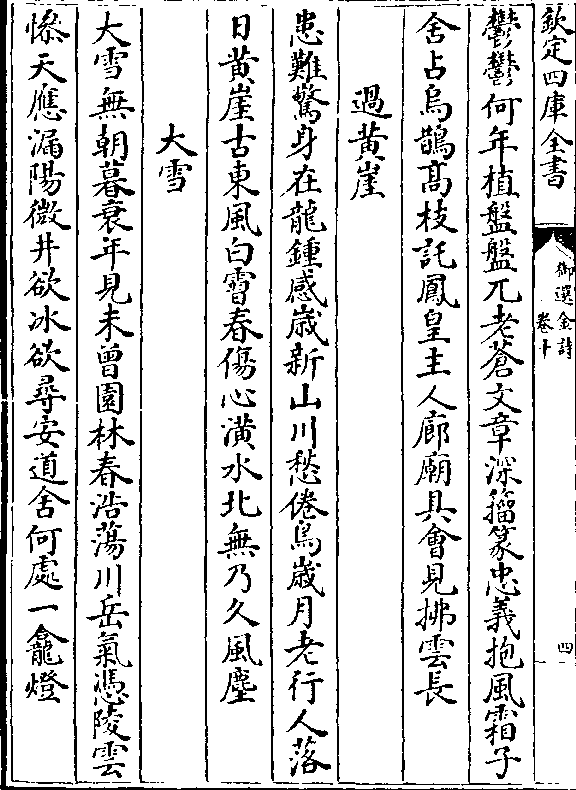 欽定四庫全書
御選金詩
卷十
四
鬱鬱何年植盤盤兀老蒼文章深籕篆忠義抱風霜子
舍占烏鵲髙枝託鳳皇主人廊廟具會見拂雲長
過黄崖
患難驚身在龍鍾感歲新山川愁倦鳥歲月老行人落
日黄崖古東風白雪春傷心潢水北無乃久風塵
大雪
大雪無朝暮衰年見未曾園林春浩蕩川岳氣憑陵雲
慘天應漏陽微井欲冰欲尋安道舍何處一龕燈